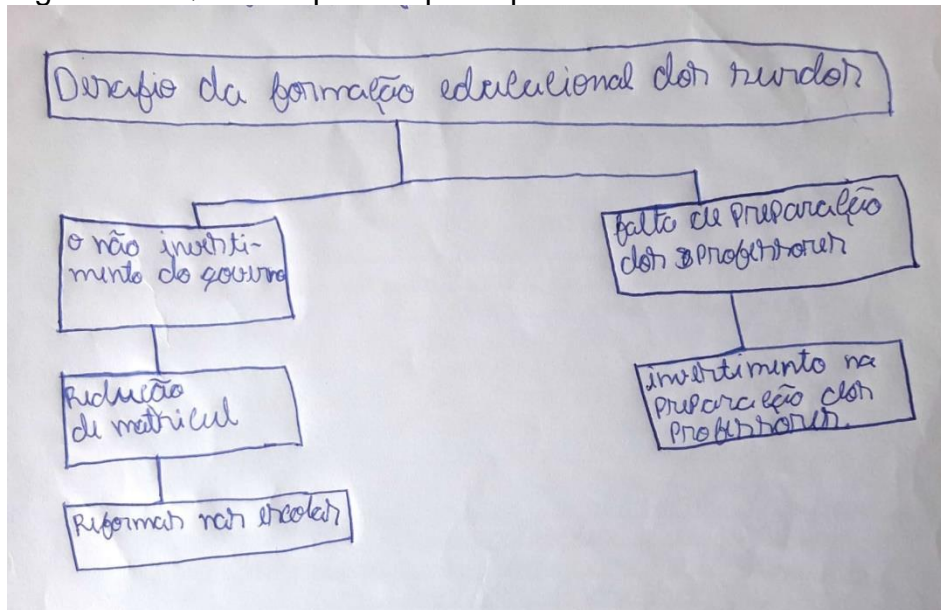 Desafio da formação educacional dos surdos
o não investi-
mento do governo
Redução
de matricul
Reformas nas escolas
falta de preparação
dos professores
investimento na
preparação dos
professores.